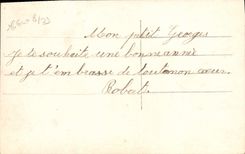 Mon petit Georges
Je te souhaite une bonne année
et je t'embrasse de tout mon cœur.
Robert.